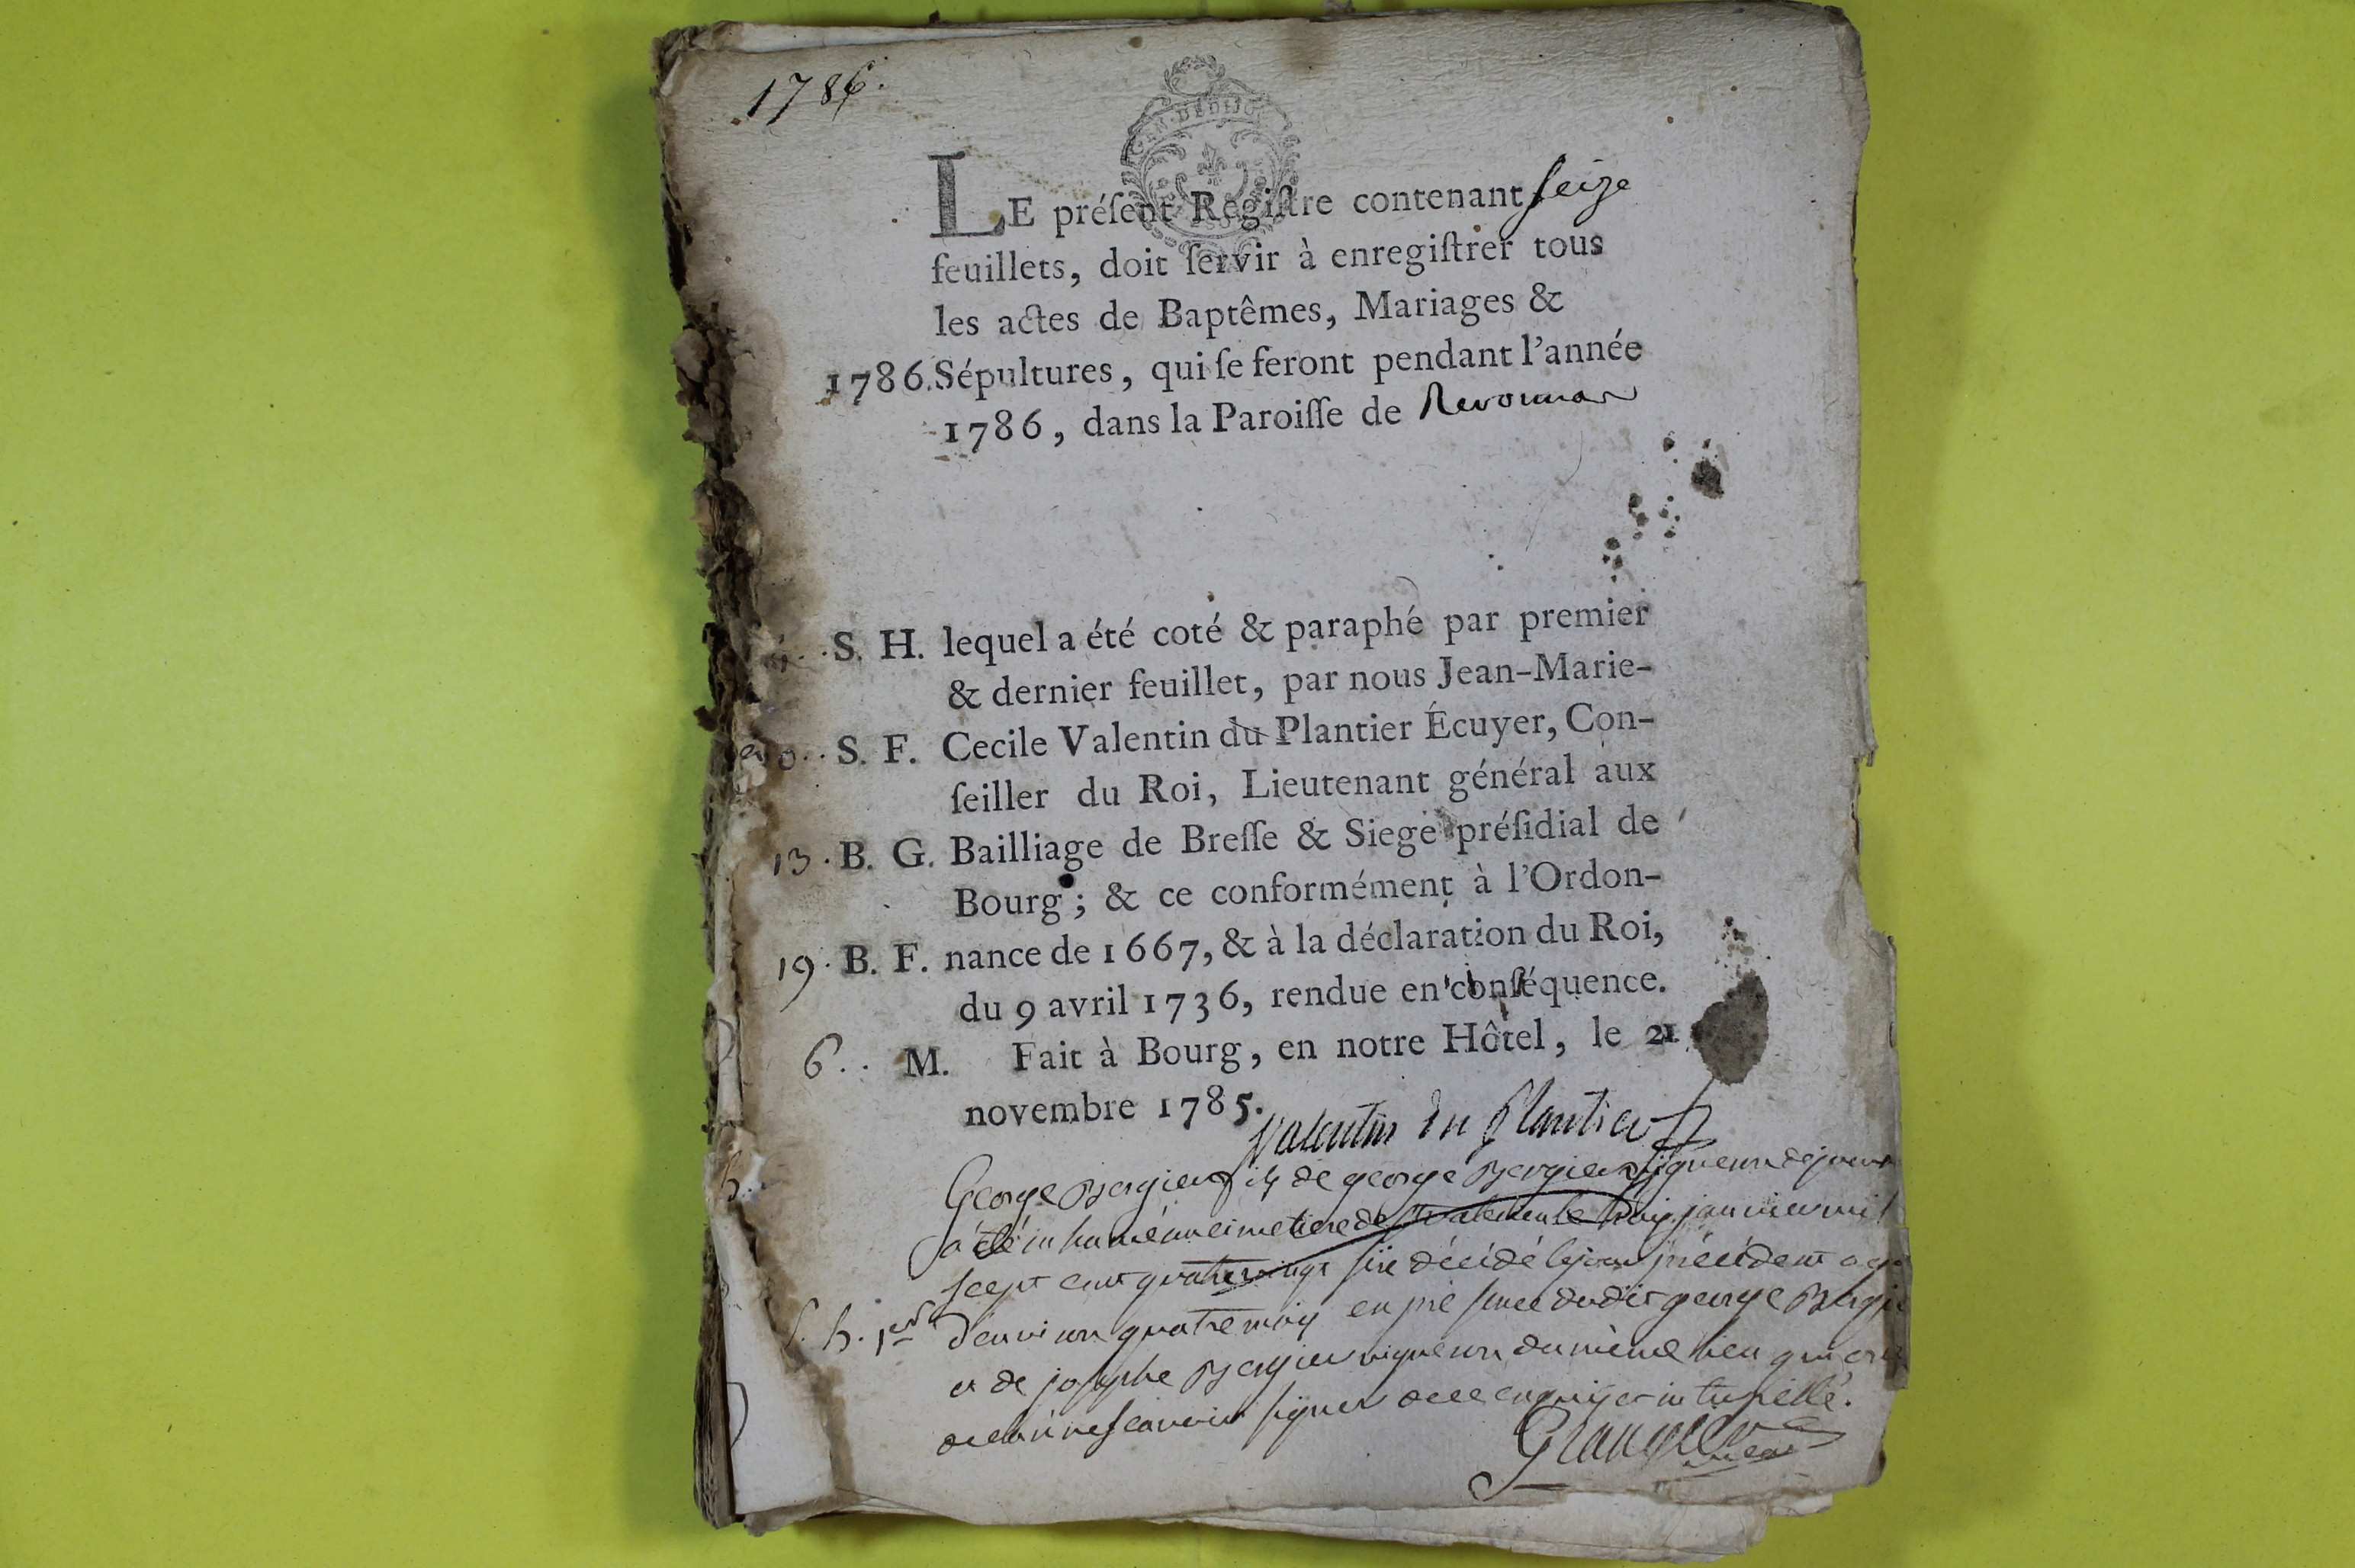 1786.
LE préſent Regiſtre contenant ſeize
feuillets, doit ſervir à enregiſtrer tous
les actes de Baptêmes, Mariages &
1786. Sépultures, qui ſe feront pendant l'année
1786, dans la Paroiſſe de Revonnas
S. H. lequel a été coté & paraphé par premier
& dernier feuillet, par nous Jean-Marie-
S. F. Cecile Valentin du Plantier Écuyer, Con-
ſeiller du Roi, Lieutenant général aux
13. B. G. Bailliage de Breſſe & Siege préſidial de
Bourg; & ce conformément à l'Ordon-
19. B. F. nance de 1667, & à la déclaration du Roi,
du 9 avril 1736, rendue en conſéquence.
6.. M. Fait à Bourg, en notre Hôtel, le 21
novembre 1785.
Valentin du Plantier
George Bergier fils de george Bergier vigneron
a été inhumé au cimetiere de janvier mil
sept cent quatre vingt six décédé le jour précédent
S. h. 1er d'environ quatre mois en présence dudit george Bergie
et de josephe Bergier vigneron du même lieu qui ont
declaré ne scavoir signer de ce enquis et interpellé.